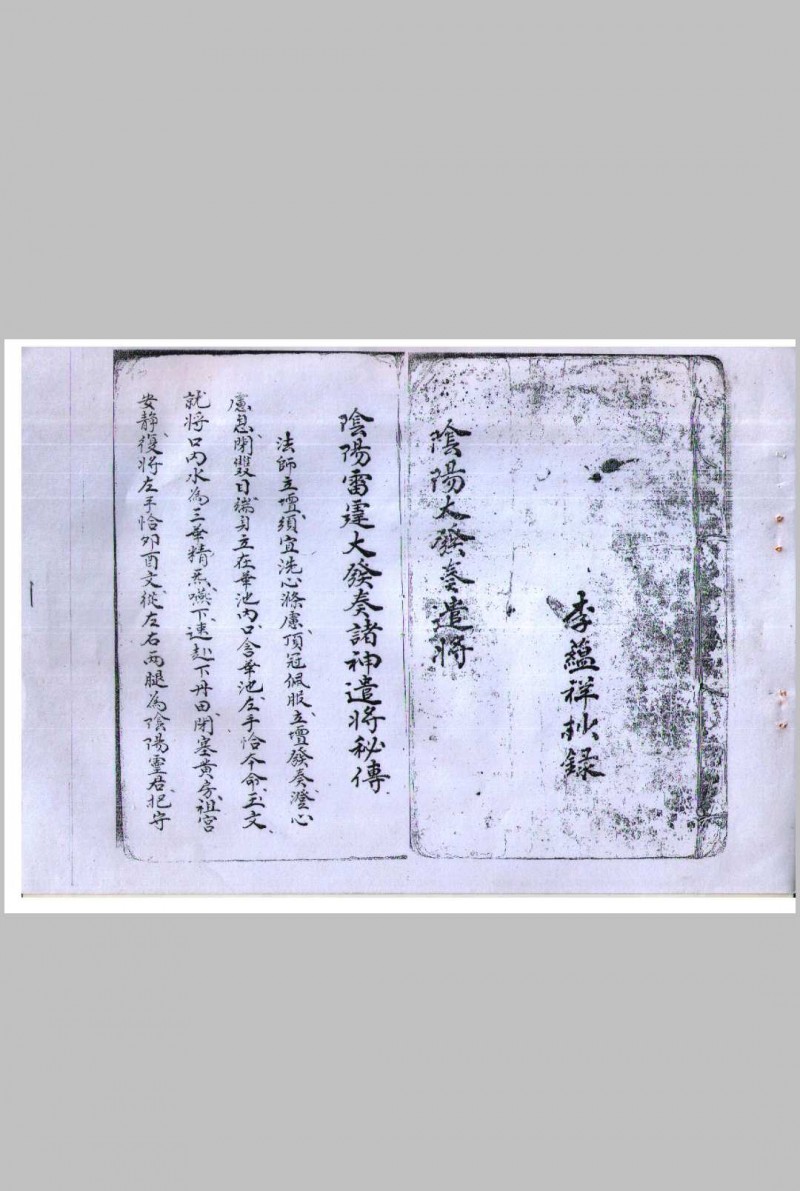 李蘊祥抄錄
陰陽大發奏遣將
陰陽雷霆大發奏諸神遣將秘傳
法師立壇須宜洗心滌慮頂冠佩服立壇發奏澄心
慮息閉雙目端身立在華池內口含華池左手恰本命玉文
就将口內水為三華精炁嚥下速赴下丹田閉塞黄房祖宮
安静復将左手恰卯酉文從左右兩腿為陰陽靈君把守